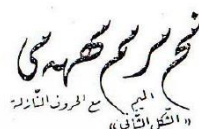 نحم سرسم تمهمه سی
الميم مع الحروف النازلة
« الشكل الثاني »